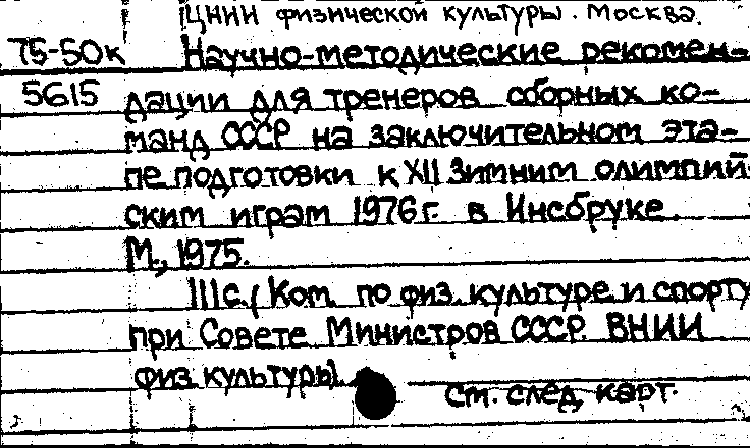 ЦНИИ физической культуры. Москва.
75-50к Научно-методические рекомен-
5615 дации для тренеров сборных ко-
манд СССР на заключительном эта-
пе подготовки к XII Зимним олимпий-
ским играм 1976 г. в Инсбруке.
М., 1975.
111 с. (Ком. по физ. культуре и спорту
при Совете Министров СССР. ВНИИ
физ. культуры).
См. след. карт.